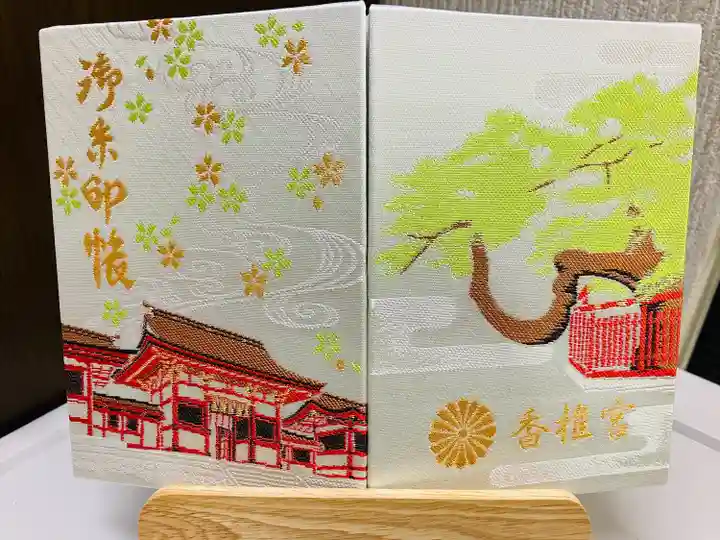 御朱印帳
香椎宮